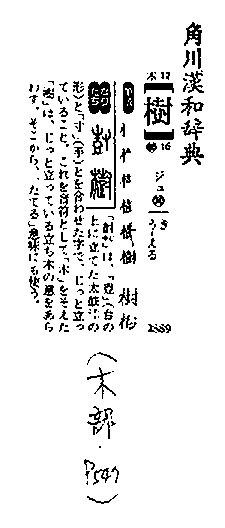 角川漢和辞典
木12【樹】16 ジュ漢 き うえる
樹 樹 2889
「尌」は、「壴」(台の
上に立てた太鼓の
形)と「寸」(手)とを合わせた字で、じっと立っ
ていること。これを音符として、「木」をそえた
「樹」は、じっと立っている立ち木の意をあら
わす。そこから、「たてる」意味にも使う。
(木部・P547)